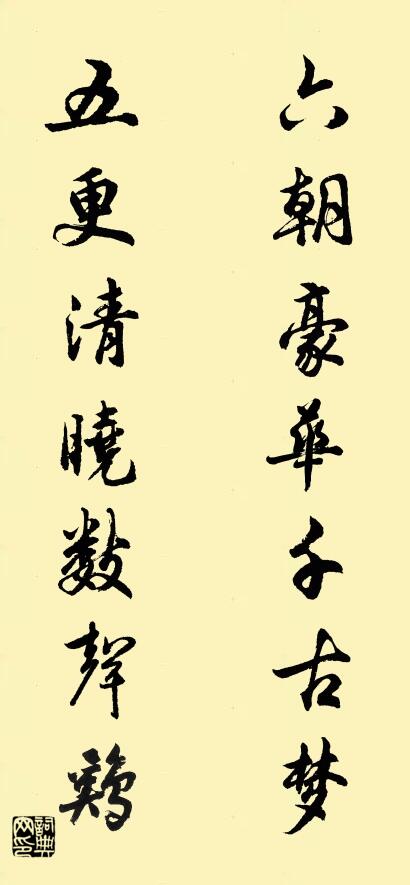 六朝豪華千古梦
五更清曉数聲鷄
詞典网印